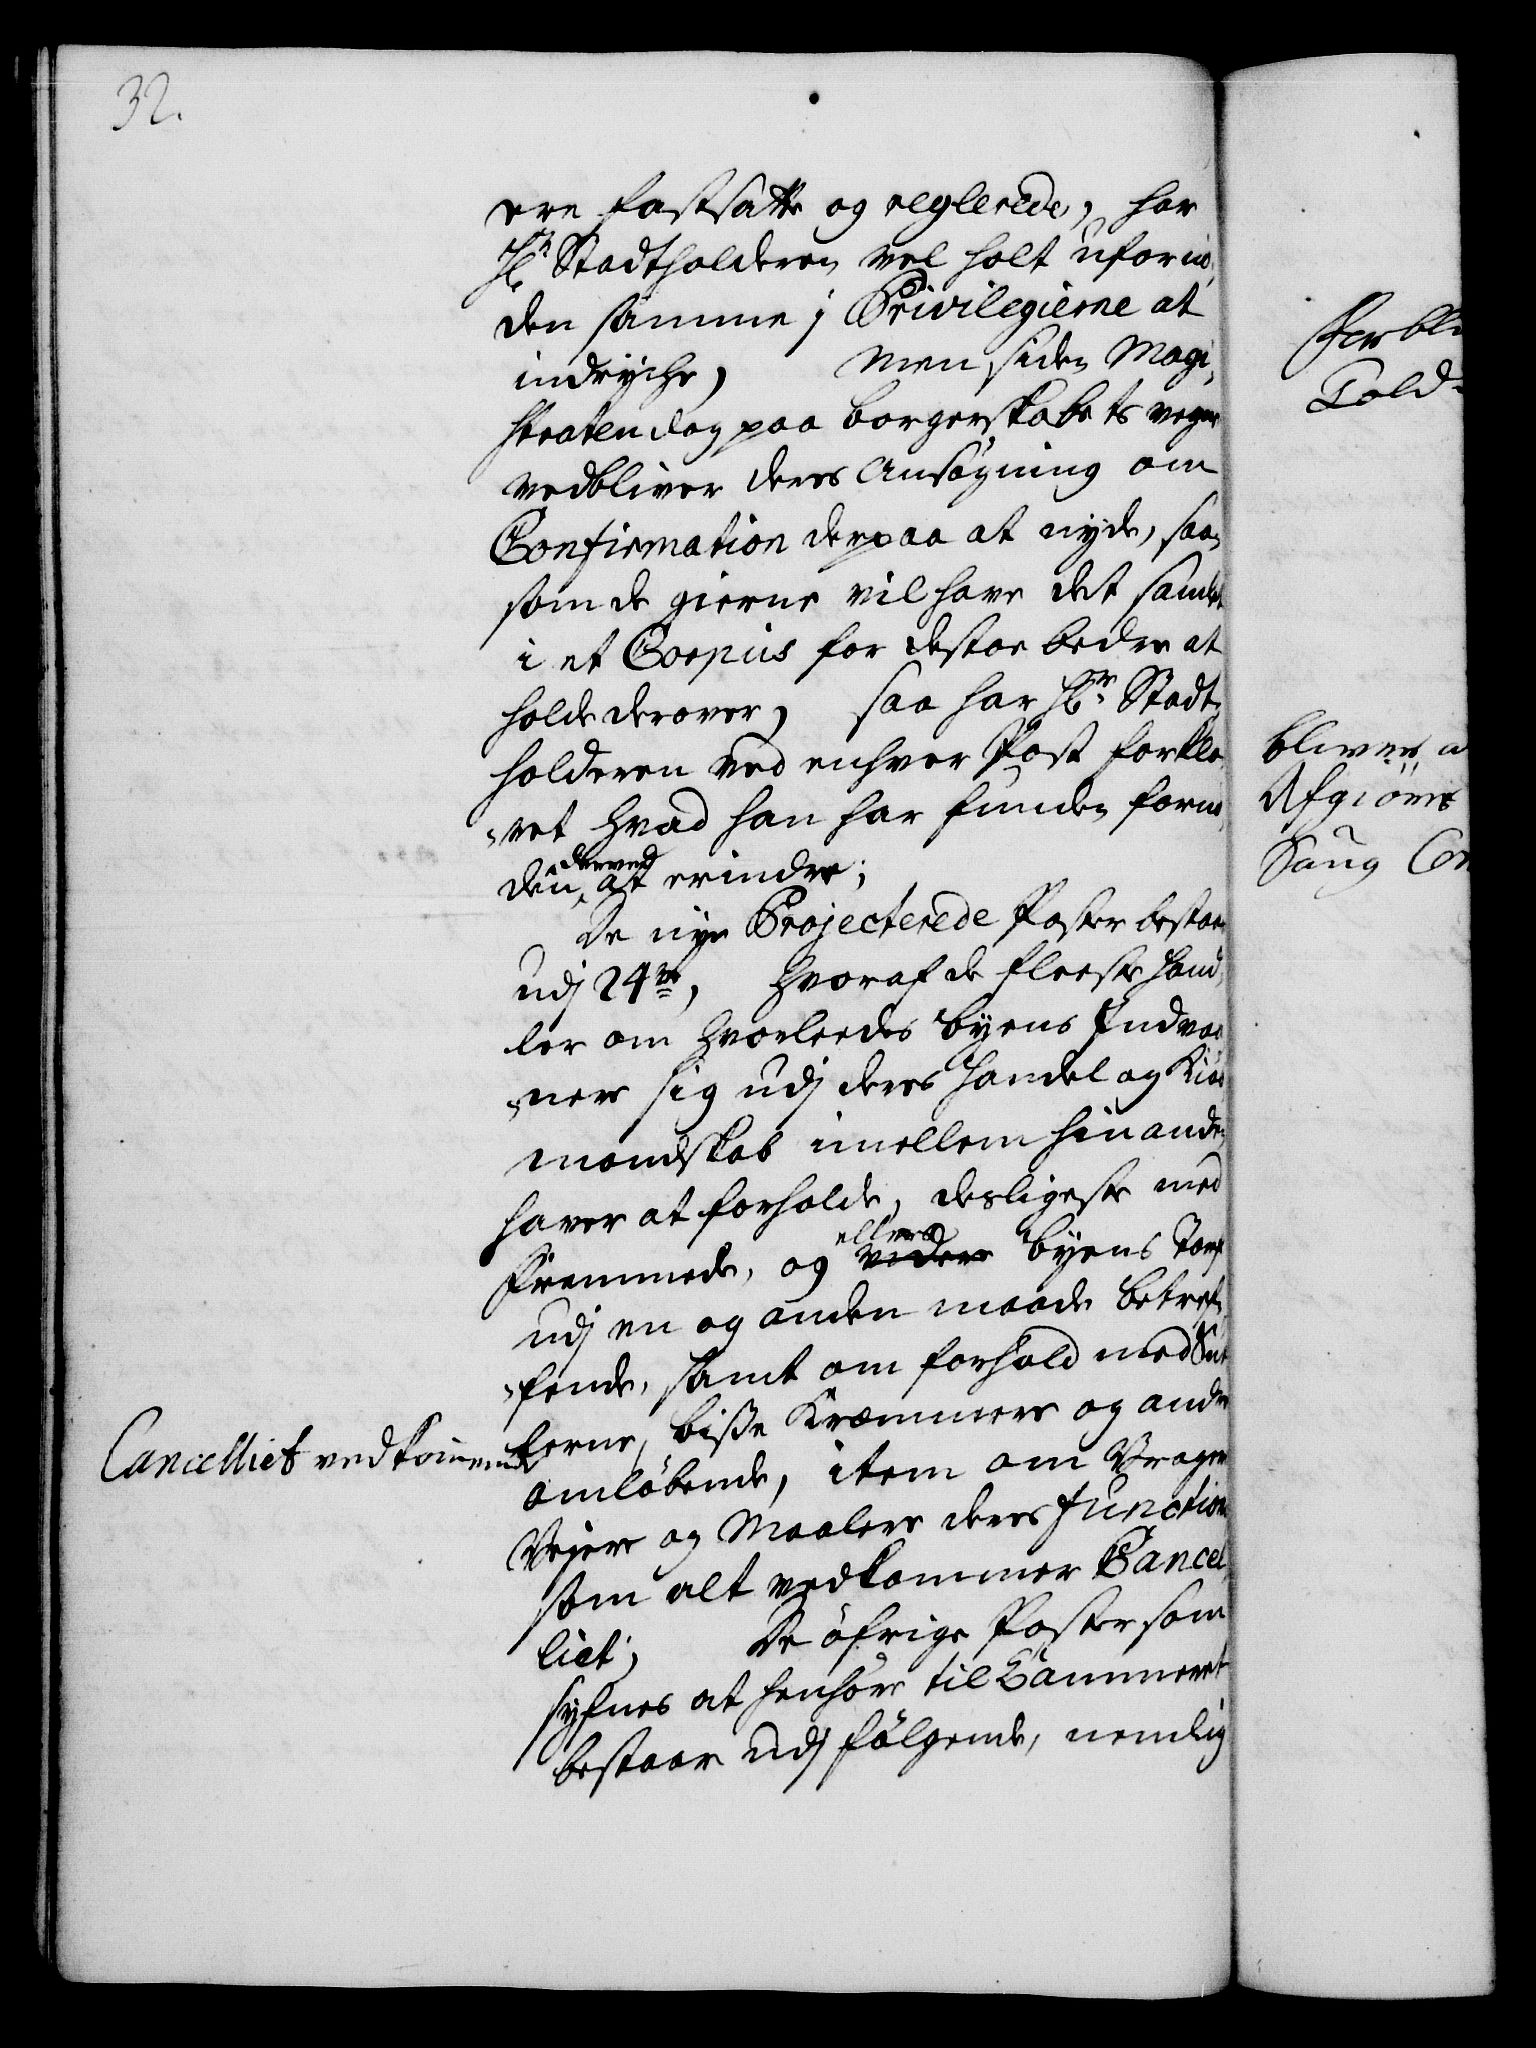 32.
ere fastsatte og reglerede, har
Hr Stadtholderen vel holt ufornø¬
den samme i Privilegierne at
indrycke, Men siden Magi¬
straten dog paa borgerskabets vegne
vedbliver deres Ansøgning om
Confirmation derpaa at nyde, saa¬
som de gierne vil have det samlet
i et Corpus for destoe bedre at
holde derover, saa har Hr Stadt¬
holderen ved enhver Post forkla¬
ret hvad han har funden fornø¬
den derved at erindre;
De nye Projecterede Poster bestaar
udj 24de, hvoraf de fleeste hand¬
ler om hvorledes byens Indvaa¬
nere sig udj deres handel og Kiøb¬
mandskab imellem hinanden
haver at forholde, desligeste med
Fremmede, og ellers videre byens Tarf
udj en og anden maade betref¬
fende, samt om forhold med
bisse Kræmmere og andre
omløbende, item om Vragere
Vejere og Maalere deres Function
som alt vedkommer Cancel¬
liet; De øfrige Poster som
syfnes at henhøre til Cammeret
bestaar udj følgende, nemlig
Cancelliet vedkommende
Told¬
bliver
Afgiøres